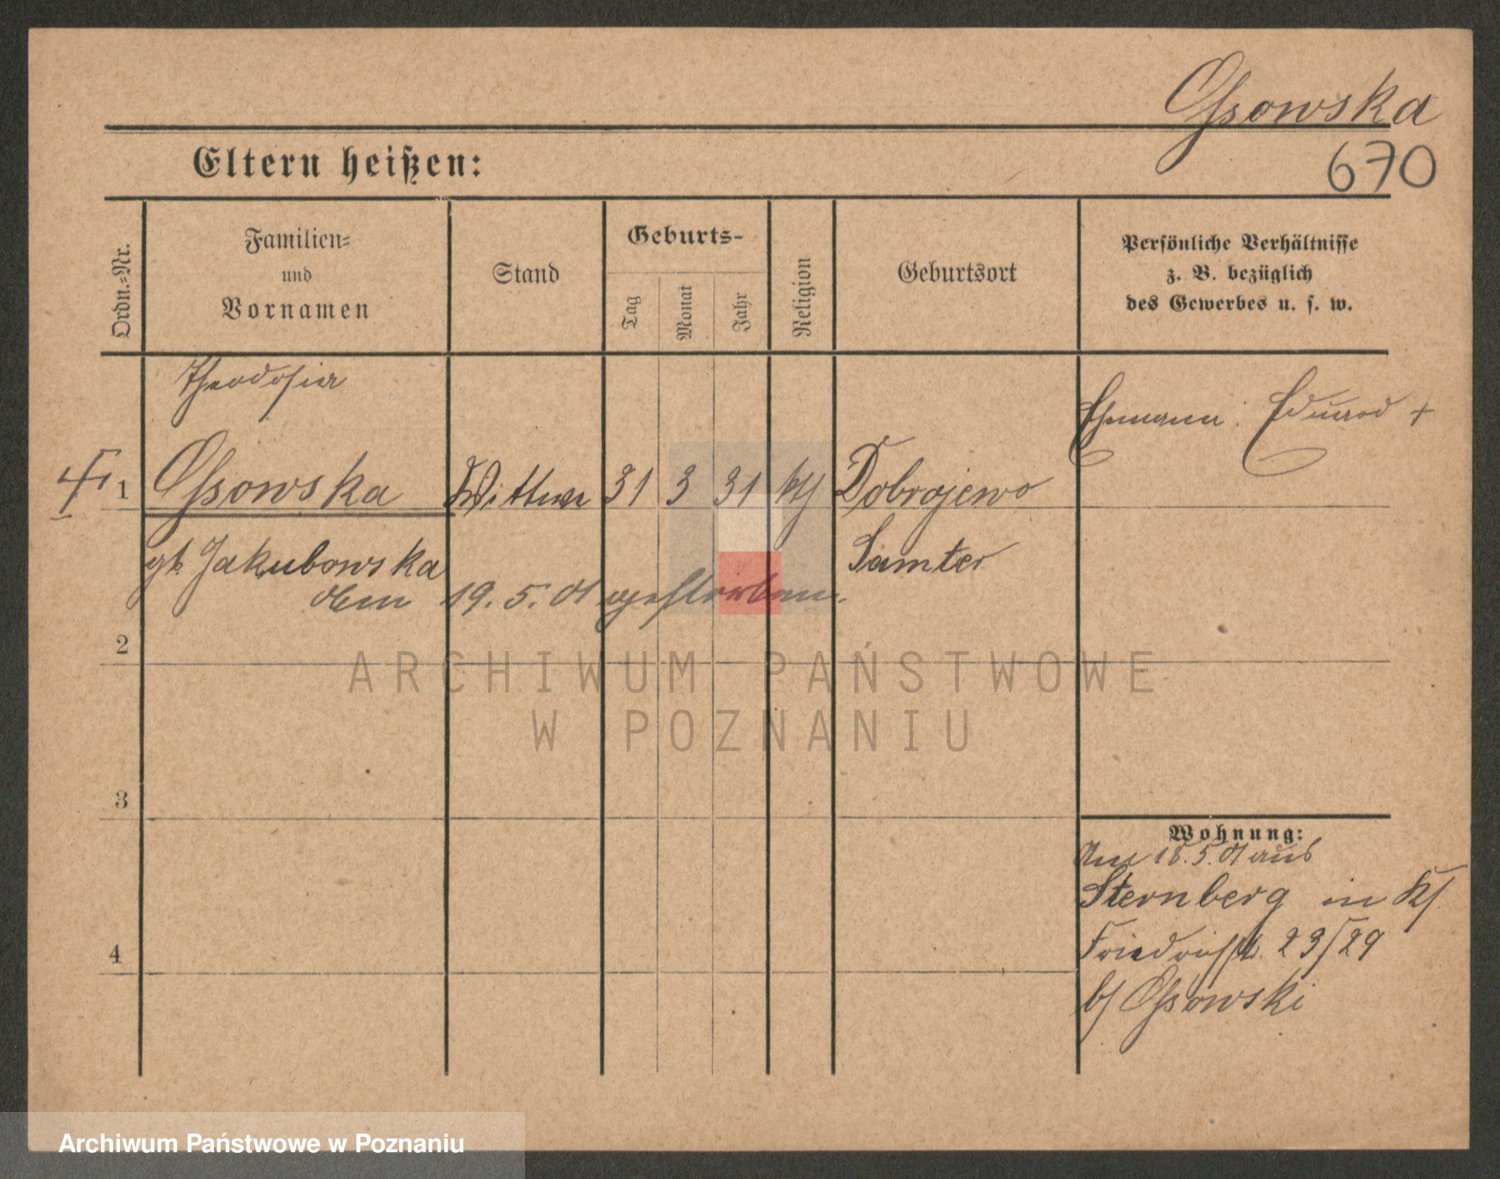 Ossowska
670
Eltern heißen:
Ordn.-Nr.
Familien-
und
Vornamen
Stand
Geburts-
Tag
Monat
Jahr
Religion
Geburtsort
Persönliche Verhältnisse
z. B. bezüglich
des Gewerbes u. s. w.
Theodosia
Ehemann: Eduard +
1 Ossowska Wittwe 31 3 31 kth Dobrojewo
gb. Jakubowska Samter
den 19. 5. 01 gestorben.
2
3
4
Wohnung:
Am 18. 5. 01 aus
Sternberg in
Friedrichstr. 23/29
b/ Ossowski
ARCHIWUM PAŃSTWOWE
W POZNANIU
Archiwum Państwowe w Poznaniu